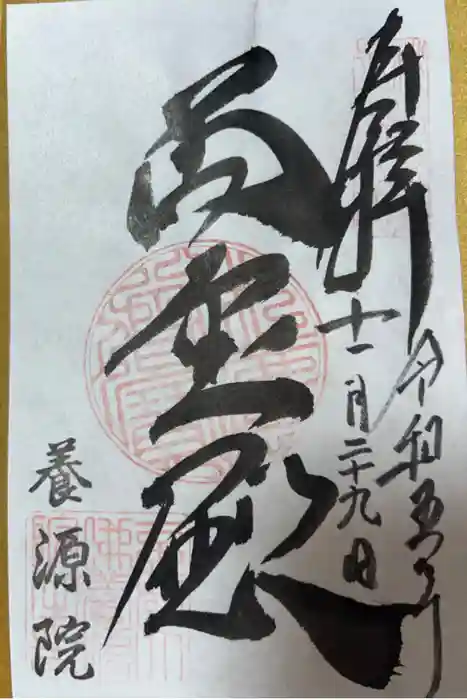 奉拝
令和五年
十一月二十九日
萬霊殿
養源院